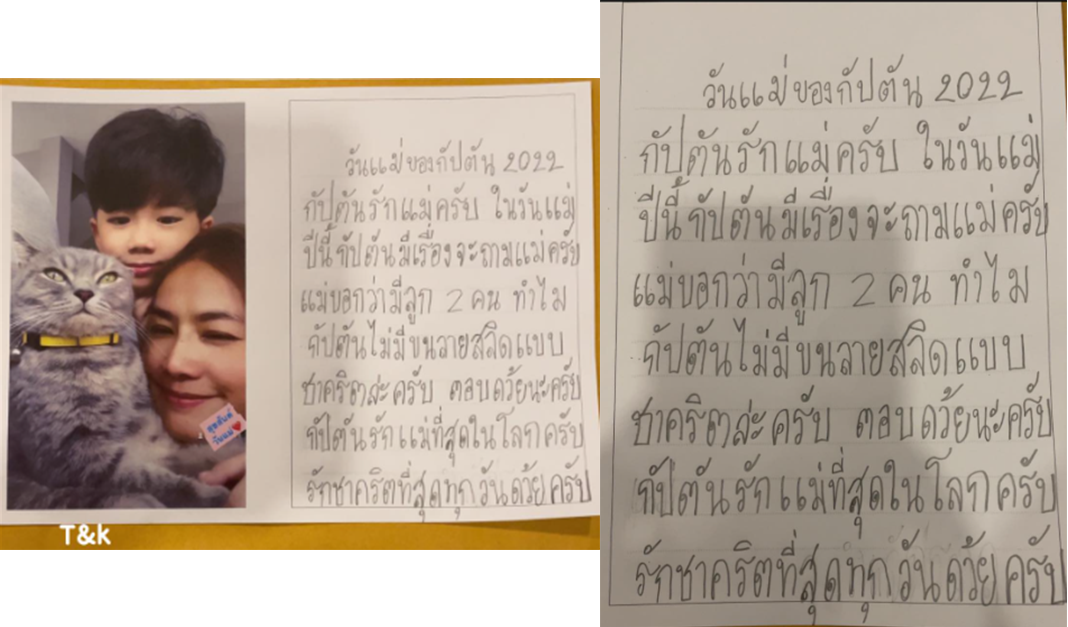 วันแม่ของกัปตัน 2022
กัปตันรักแม่ครับ ในวันแม่
ปีนี้กัปตันมีเรื่องจะถามแม่ครับ
แม่บอกว่ามีลูก 2 คน ทำไม
กัปตันไม่มีขนลายสลิดแบบ
ชาคริตล่ะครับ ตอบด้วยนะครับ
กัปตันรักแม่ที่สุดในโลกครับ
รักชาคริตที่สุดทุกวันด้วยครับ
สุขสันต์
วันแม่
T&k
วันแม่ของกัปตัน 2022
กัปตันรักแม่ครับ ในวันแม่
ปีนี้กัปตันมีเรื่องจะถามแม่ครับ
แม่บอกว่ามีลูก 2 คน ทำไม
กัปตันไม่มีขนลายสลิดแบบ
ชาคริตล่ะครับ ตอบด้วยนะครับ
กัปตันรักแม่ที่สุดในโลกครับ
รักชาคริตที่สุดทุกวันด้วยครับ